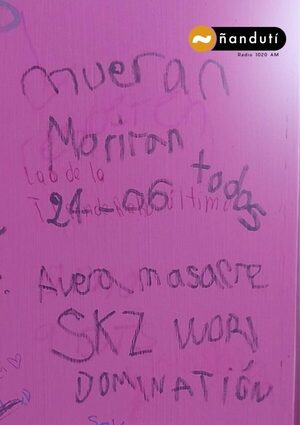 ñandutí
Radio 1020 AM
mueran
Moriran
todos
24-06
Avera masacre
SKZ WORl
DOMINATIÓN